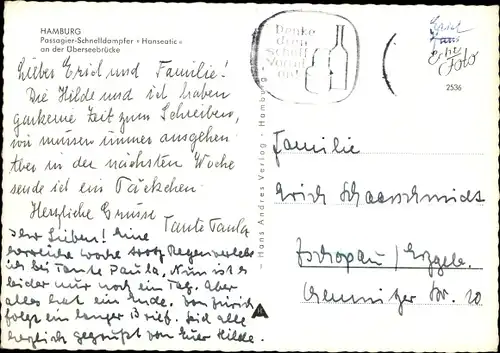 HAMBURG
Passagier-Schnelldampfer »Hanseatic«
an der Überseebrücke
Lieber Erich und Familie!
Die Hilde und ich haben
garkeine Zeit zum Schreiben,
wir müssen immer ausgehen.
Aber in der nächsten Woche
sende ich ein Päckchen.
Herzliche Grüsse
Tante Paula
Ihr Lieben! Eine
herrliche Woche trotz Regen verlebe
ich bei Tante Paula. Nun ist es
leider nur noch ein Tag. Aber
alles hat ein Ende. Von Zürich
folgt ein langer Brief. Seid alle
herzlich gegrüßt von Eurer Hilde.
— Hans Andres Verlag - Hamburg -
Denke
dran
schaff
Vorrat
an!
Foto
2536
Familie
Erich Schaarschmidt
Zschopau/Erzgeb.
Chemnitzer Str. 20